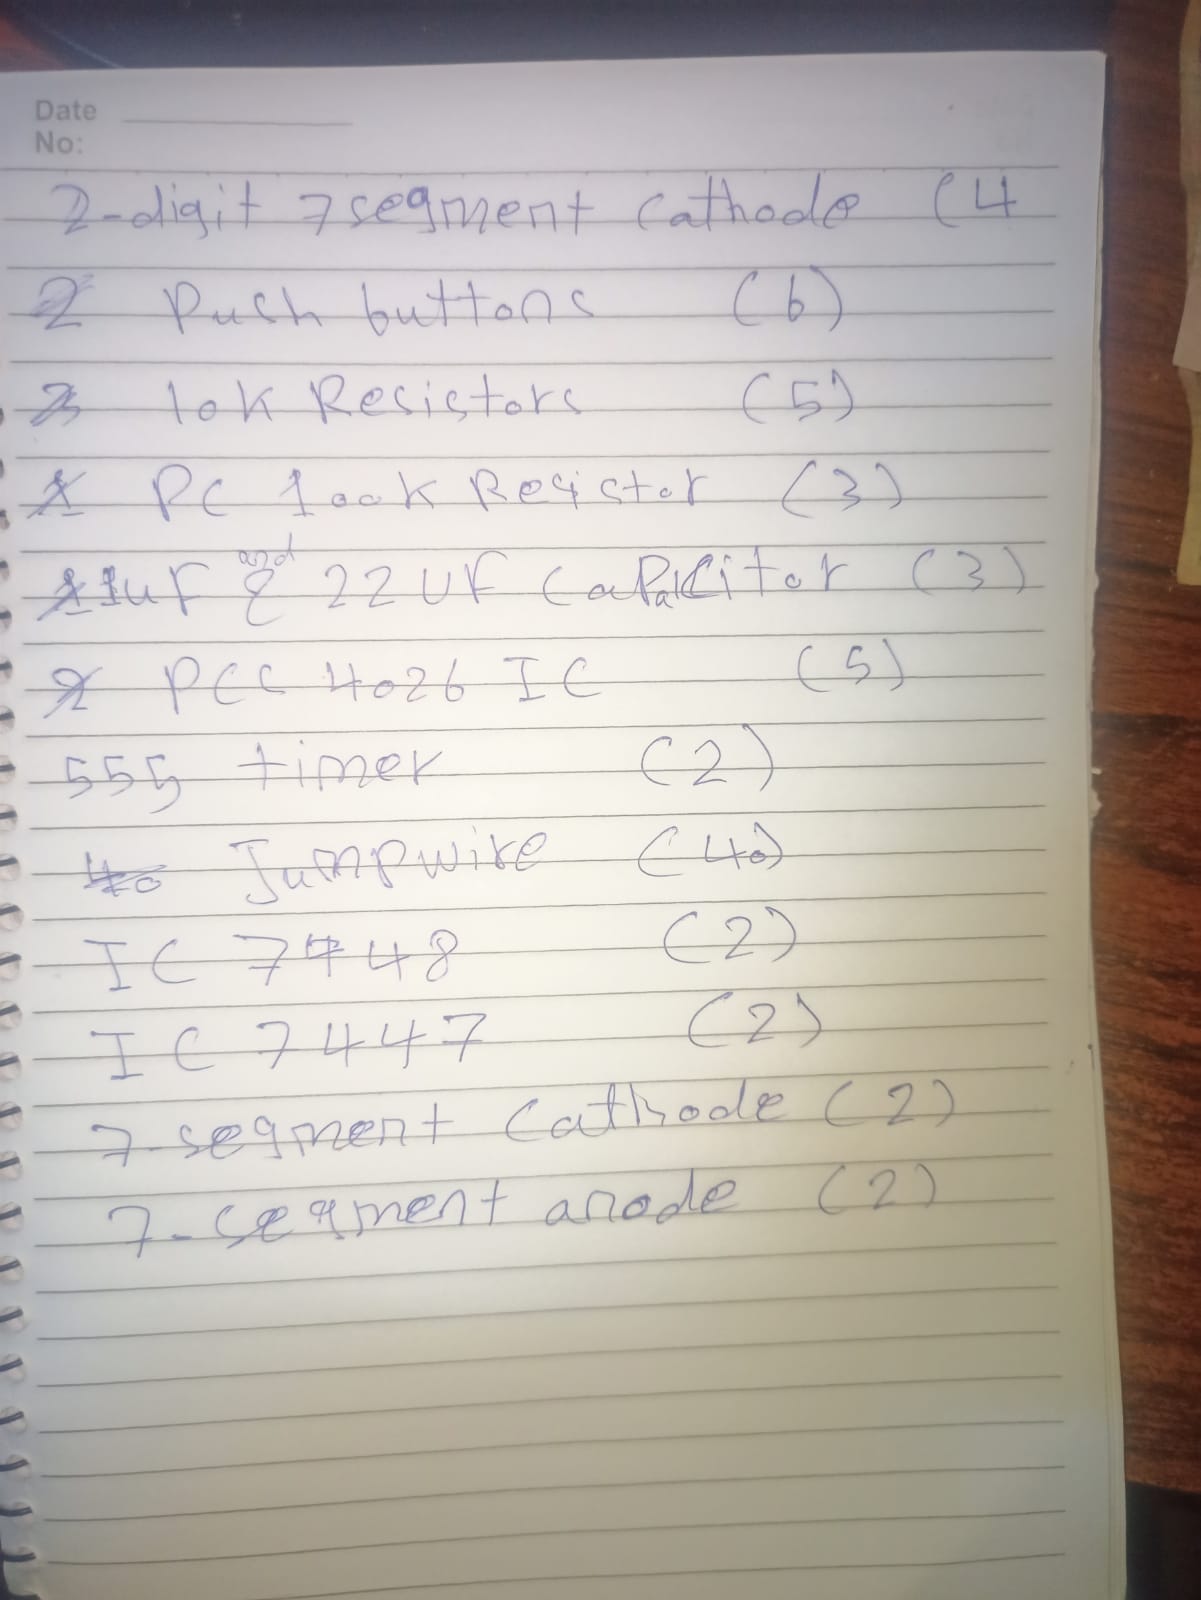 Date
No:
2-digit 7segment cathode (4
Push buttons (6)
10k Resistors (5)
PC 100k Resistor (3)
1uF and 22 UF Capacitor (3)
PCC 4026 IC (5)
555 timer (2)
Jumpwire (40)
IC 7448 (2)
IC 7447 (2)
7-segment Cathode (2)
7-segment anode (2)